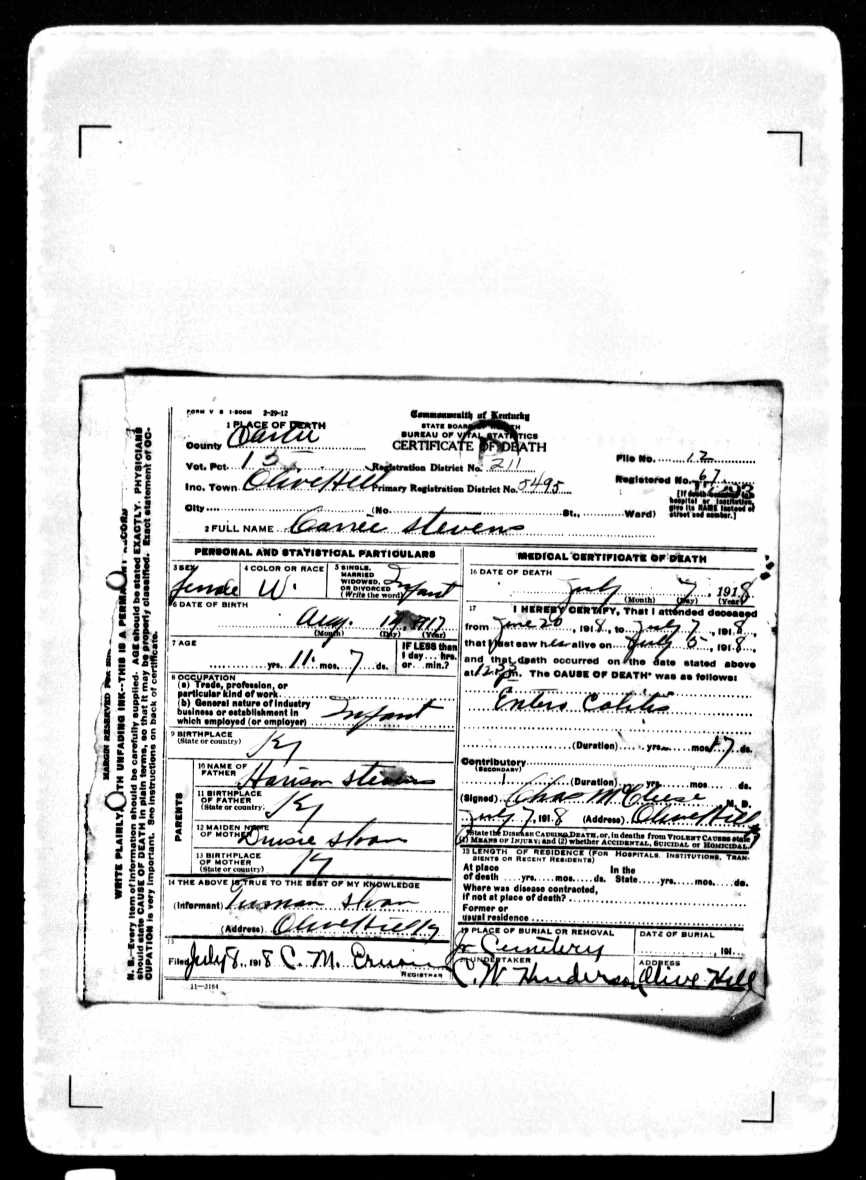 FORM V S 1-500M 2-29-12
Commonwealth of Kentucky
STATE BOARD OF HEALTH
BUREAU OF VITAL STATISTICS
CERTIFICATE OF DEATH
1 PLACE OF DEATH
County Carter
Vot. Pct. 13
Inc. Town Olive Hill
City
Registration District No. 211
Primary Registration District No. 5495
(No. St., Ward)
File No. 12
Registered No. 67
[If death occurred in a
hospital or institution,
give its NAME instead of
street and number.]
2 FULL NAME Carree Stevens
PERSONAL AND STATISTICAL PARTICULARS
3 SEX
Female
4 COLOR OR RACE
W.
5 SINGLE,
MARRIED
WIDOWED,
OR DIVORCED
(Write the word)
Infant
6 DATE OF BIRTH
Aug. 14, 1917
(Month) (Day) (Year)
7 AGE
yrs. 11 mos. 7 ds.
IF LESS than
1 day... hrs.
or... min.?
8 OCCUPATION
(a) Trade, profession, or
particular kind of work
(b) General nature of industry
business or establishment in
which employed (or employer)
Infant
9 BIRTHPLACE
(State or country)
Ky
PARENTS
10 NAME OF
FATHER
Harison Stevens
11 BIRTHPLACE
OF FATHER
(State or country)
Ky
12 MAIDEN NAME
OF MOTHER
Sloan
13 BIRTHPLACE
OF MOTHER
(State or country)
Ky
14 THE ABOVE IS TRUE TO THE BEST OF MY KNOWLEDGE
(Informant) Sloan
(Address) Olive Hill Ky
15
Filed July 8, 1918 C. M.
REGISTRAR
11-3184
MEDICAL CERTIFICATE OF DEATH
16 DATE OF DEATH
July 7, 1918
(Month) (Day) (Year)
17
I HEREBY CERTIFY, That I attended deceased
from June 20, 1918, to July 7, 1918,
that I last saw her alive on July 5, 1918,
and that death occurred on the date stated above
at m. The CAUSE OF DEATH* was as follows:
Entero Colitis
(Duration) yrs. mos. 17 ds.
Contributory
(SECONDARY)
(Duration) yrs. mos. ds.
(Signed) Chas M. D.
July 7, 1918 (Address) Olive Hill
*State the DISEASE CAUSING DEATH, or, in deaths from VIOLENT CAUSES state
(1) MEANS OF INJURY; and (2) whether ACCIDENTAL, SUICIDAL or HOMICIDAL.
18 LENGTH OF RESIDENCE (FOR HOSPITALS, INSTITUTIONS, TRAN-
SIENTS OR RECENT RESIDENTS)
At place
of death yrs. mos. ds.
In the
State yrs. mos. ds.
Where was disease contracted,
if not at place of death?
Former or
usual residence
19 PLACE OF BURIAL OR REMOVAL
Cemetery
DATE OF BURIAL
191
20 UNDERTAKER
C. W Henderson
ADDRESS
Olive Hill
MARGIN RESERVED FOR
WRITE PLAINLY, WITH UNFADING INK--THIS IS A PERMANENT RECORD
N. B.--Every item of information should be carefully supplied. AGE should be stated EXACTLY. PHYSICIANS
should state CAUSE OF DEATH in plain terms, so that it may be properly classified. Exact statement of OC-
CUPATION is very important. See instructions on back of certificate.